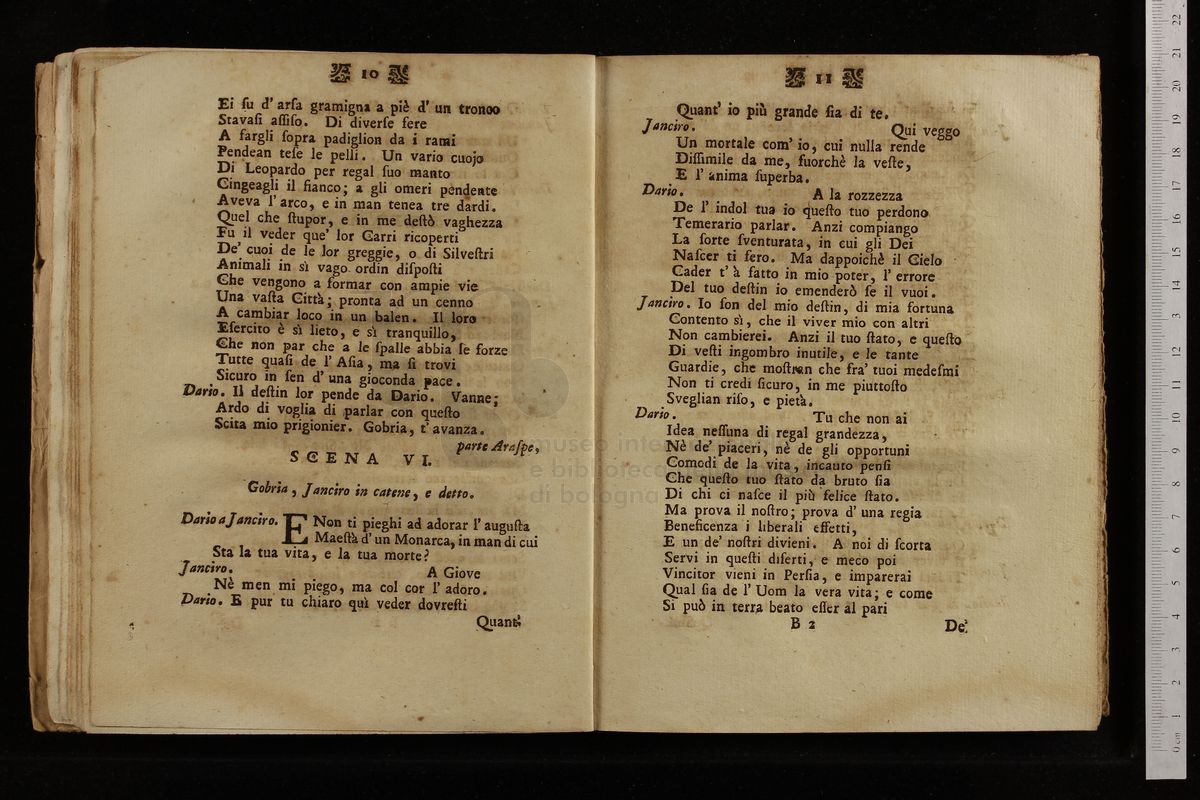 10
Ei ſu d' arſa gramigna a piè d' un tronco
Stavaſi aſſiſo. Di diverſe fere
A fargli ſopra padiglion da i rami
Pendean teſe le pelli. Un vario cuojo
Di Leopardo per regal ſuo manto
Cingeagli il fianco; a gli omeri pendente
Aveva l' arco, e in man tenea tre dardi.
Quel che ſtupor, e in me deſtò vaghezza
Fu il veder que' lor Carri ricoperti
De' cuoi de le lor greggie, o di Silveſtri
Animali in sì vago ordin diſpoſti
Che vengono a formar con ampie vie
Una vaſta Città; pronta ad un cenno
A cambiar loco in un balen. Il loro
Eſercito è sì lieto, e sì tranquillo,
Che non par che a le ſpalle abbia ſe forze
Tutte quaſi de l' Aſia, ma ſi trovi
Sicuro in ſen d' una gioconda pace.
Dario. Il deſtin lor pende da Dario. Vanne;
Ardo di voglia di parlar con queſto
Scita mio prigionier. Gobria, t' avanza.
parte Araſpe,
SCENA VI.
Gobria, Janciro in catene, e detto.
Dario a Janciro. E Non ti pieghi ad adorar l' auguſta
Maeſtà d' un Monarca, in man di cui
Sta la tua vita, e la tua morte?
Janciro. A Giove
Nè men mi piego, ma col cor l' adoro.
Dario. E pur tu chiaro quì veder dovreſti
Quant'
11
Quant' io più grande ſia di te.
Janciro. Qui veggo
Un mortale com' io, cui nulla rende
Diſſimile da me, fuorchè la veſte,
E l' anima ſuperba.
Dario. A la rozzezza
De l' indol tua io queſto tuo perdono
Temerario parlar. Anzi compiango
La ſorte ſventurata, in cui gli Dei
Naſcer ti fero. Ma dappoichè il Cielo
Cader t' à fatto in mio poter, l' errore
Del tuo deſtin io emenderò ſe il vuoi.
Janciro. Io ſon del mio deſtin, di mia fortuna
Contento sì, che il viver mio con altri
Non cambierei. Anzi il tuo ſtato, e queſto
Di veſti ingombro inutile, e le tante
Guardie, che moſtran che fra' tuoi medeſmi
Non ti credi ſicuro, in me piuttoſto
Sveglian riſo, e pietà.
Dario. Tu che non ai
Idea neſſuna di regal grandezza,
Nè de' piaceri, nè de gli opportuni
Comodi de la vita, incauto penſi
Che queſto tuo ſtato da bruto ſia
Di chi ci naſce il più felice ſtato.
Ma prova il noſtro; prova d' una regia
Beneficenza i liberali effetti,
E un de' noſtri divieni. A noi di ſcorta
Servi in queſti diſerti, e meco poi
Vincitor vieni in Perſia, e imparerai
Qual ſia de l' Uom la vera vita; e come
Si può in terra beato eſſer al pari
B 2
De'
museo inter
e biblioteca
di bologna
0 cm 1 2 3 4 5 6 7 8 9 10 11 12 13 14 15 16 17 18 19 20 21 22